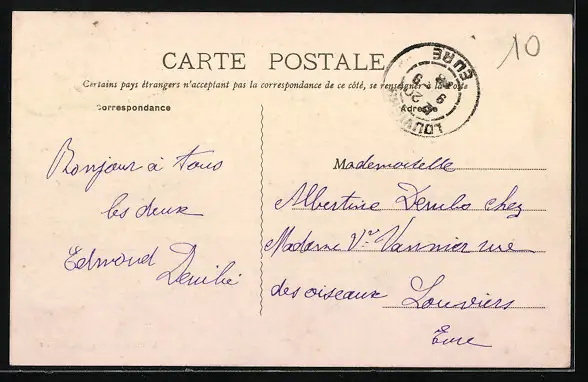 10
CARTE POSTALE
Certains pays étrangers n'acceptent pas la correspondance de ce côté, se renseigner à la Poste
Correspondance
Adresse
EURE
LOUVIERS
Bonjour à tous
les deux
Edmond
Mademoiselle
Albertine chez
Madame Vve Vannier rue
des oiseaux Louviers
Eure